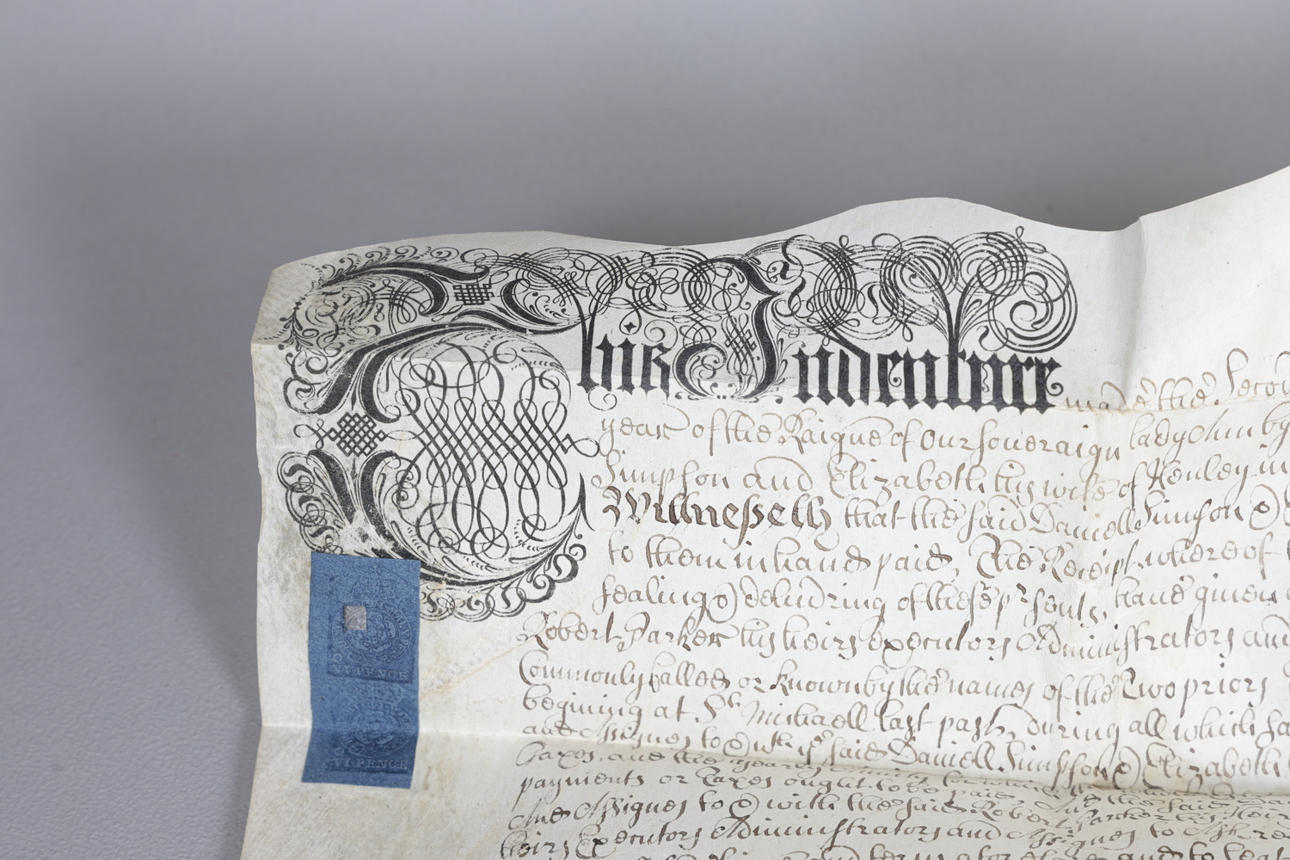 This Indenture made the Secon
year of the Raigne of our Soveraign lady Ann by
Simpson and Elizabeth his wife of Henley in
Witnesseth that the said Daniell Simpson &
to them in hand paid, The Receipt whereof
sealing & delivring of these prsents, have given
Robert Parker his heirs Executors Administrators and
Commonly Called or known by the names of the Two priors
begining at St Michaell last past, during all which
and Assignes to & wth ye said Daniell Simpson & Elizabeth
Taxes, and the yearly
payments or taxes ought to be paid And the said
And Assignes to & with the said Robert Parker his Heirs
heirs Executors Administrators and Assignes to
VI PENCE
VI PENCE